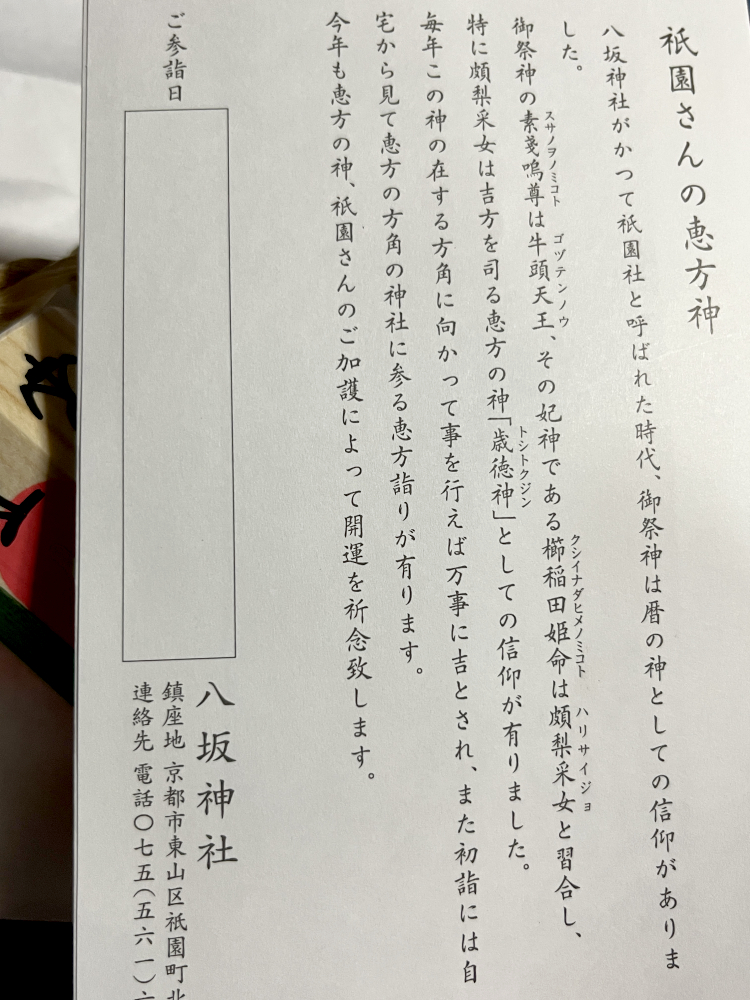 祇園さんの恵方神
八坂神社がかつて祇園社と呼ばれた時代、御祭神は暦の神としての信仰がありま
した。
御祭神の素戔嗚尊は牛頭天王、その妃神である櫛稲田姫命は頗梨采女と習合し、
スサノヲノミコト ゴヅテンノウ クシイナダヒメノミコト ハリサイジョ
特に頗梨采女は吉方を司る恵方の神「歳徳神」としての信仰が有りました。
トシトクジン
毎年この神の在する方角に向かって事を行えば万事に吉とされ、また初詣には自
宅から見て恵方の方角の神社に参る恵方詣りが有ります。
今年も恵方の神、祇園さんのご加護によって開運を祈念致します。
ご参詣日
八坂神社
鎮座地 京都市東山区祇園町北
連絡先 電話〇七五(五六一)六